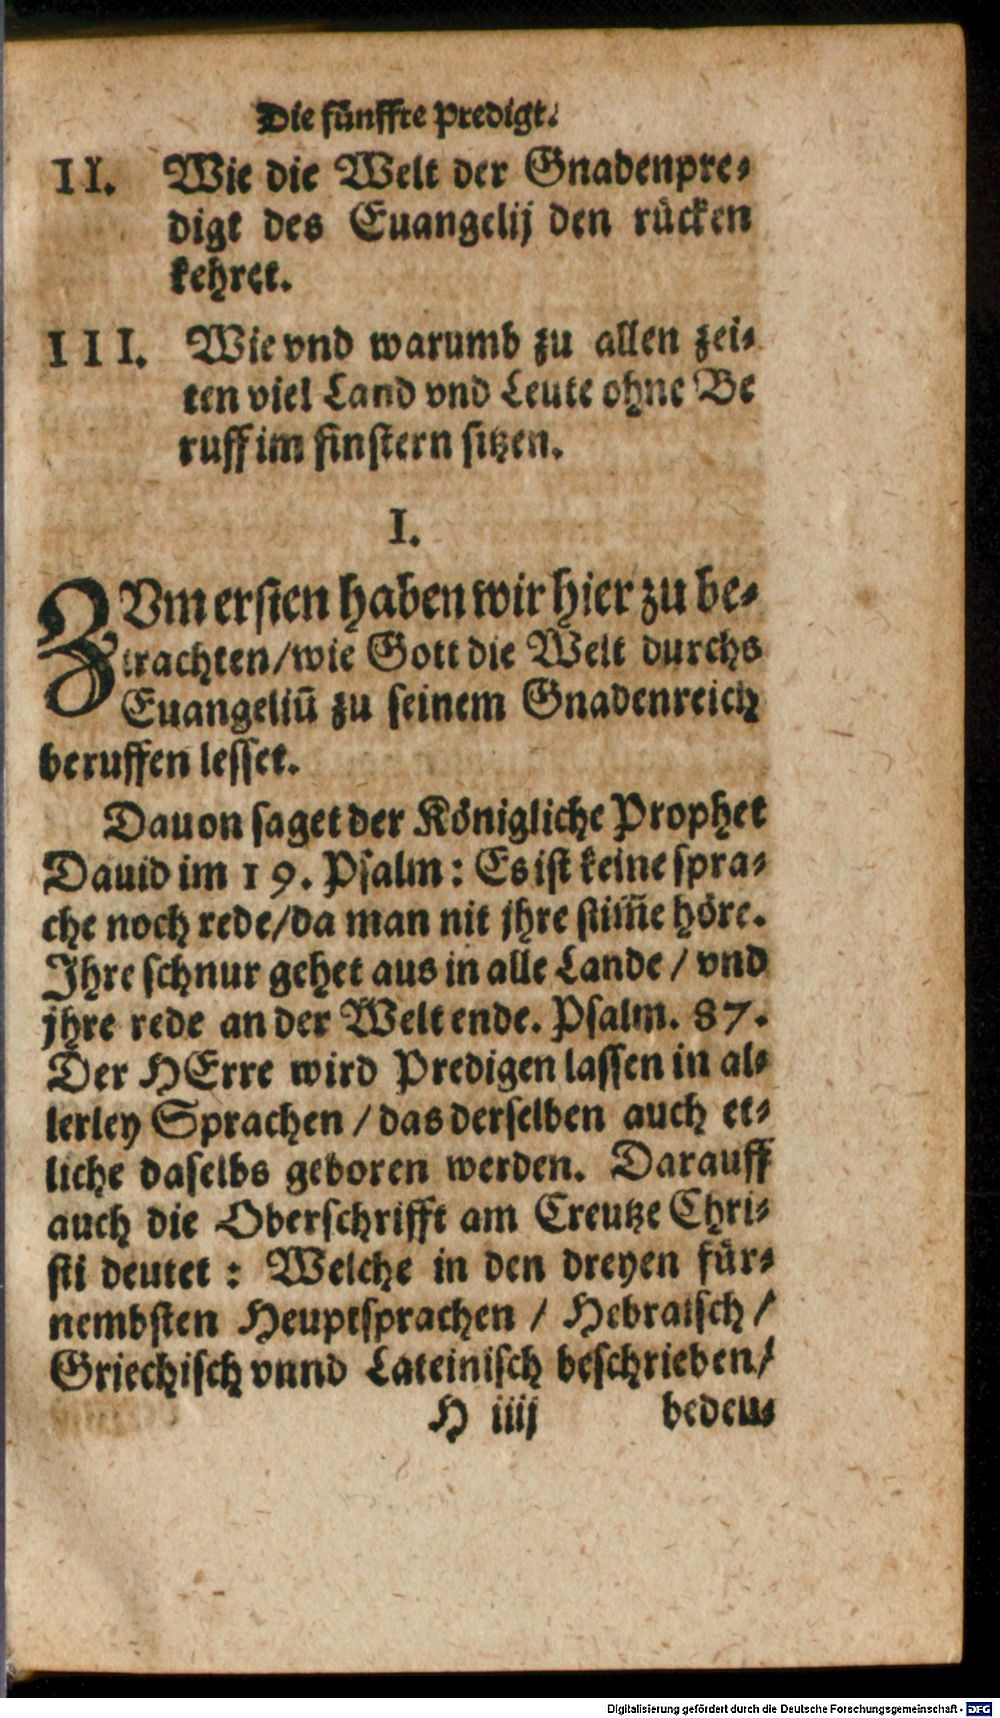 Die fünffte Predigt.
II. Wie die Welt der Gnadenpre-
digt des Euangelij den rücken
kehret.
III. Wie vnd warumb zu allen zei-
ten viel Land vnd Leute ohne Be
ruff im finstern sitzen.
I.
ZVm ersten haben wir hier zu be-
trachten/wie Gott die Welt durchs
Euangeliū zu seinem Gnadenreich
beruffen lesset.
Dauon saget der Königliche Prophet
Dauid im 19. Psalm: Es ist keine spra-
che noch rede/da man nit jhre stim̄e höre.
Ihre schnur gehet aus in alle Lande / vnd
jhre rede an der Welt ende. Psalm. 87.
Der HErre wird Predigen lassen in al-
lerley Sprachen / das derselben auch et-
liche daselbs geboren werden. Darauff
auch die Oberschrifft am Creutze Chri-
sti deutet: Welche in den dreyen für-
nembsten Heuptsprachen / Hebraisch /
Griechisch vnnd Lateinisch beschrieben/
H iiij bedeu-
Digitalisierung gefördert durch die Deutsche Forschungsgemeinschaft - DFG